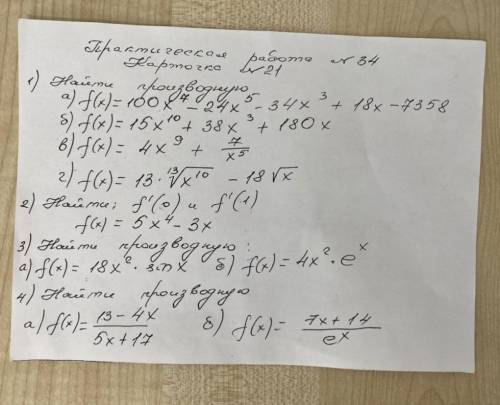 Практическая работа №34
Карточка №21
1) Найти производную
а) f(x) = 100x⁷ - 24x⁵ - 34x³ + 18x - 7358
б) f(x) = 15x¹⁰ + 38x³ + 180x
в) f(x) = 4x⁹ + 7/x⁵
г) f(x) = 13 · ¹³√x¹⁰ - 18√x
2) Найти: f'(0) и f'(1)
f(x) = 5x⁴ - 3x
3) Найти производную:
а) f(x) = 18x² · sin x б) f(x) = 4x² · eˣ
4) Найти производную
а) f(x) = (13 - 4x)/(5x + 17) б) f(x) = (7x + 14)/eˣ